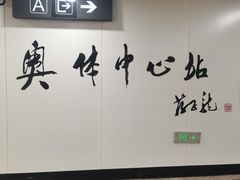 A
奥体中心站